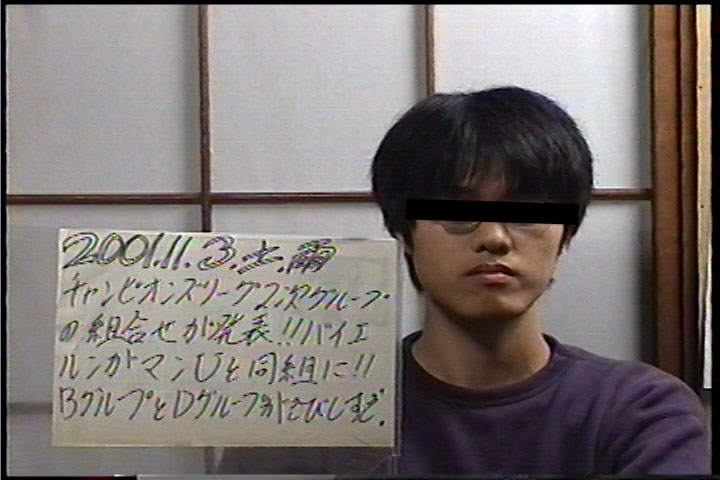 2001.11.3.土.雨
チャンピオンズリーグ2次グループ
の組合せが発表!!バイエ
ルンがマンUと同組に!!
BグループとDグループが